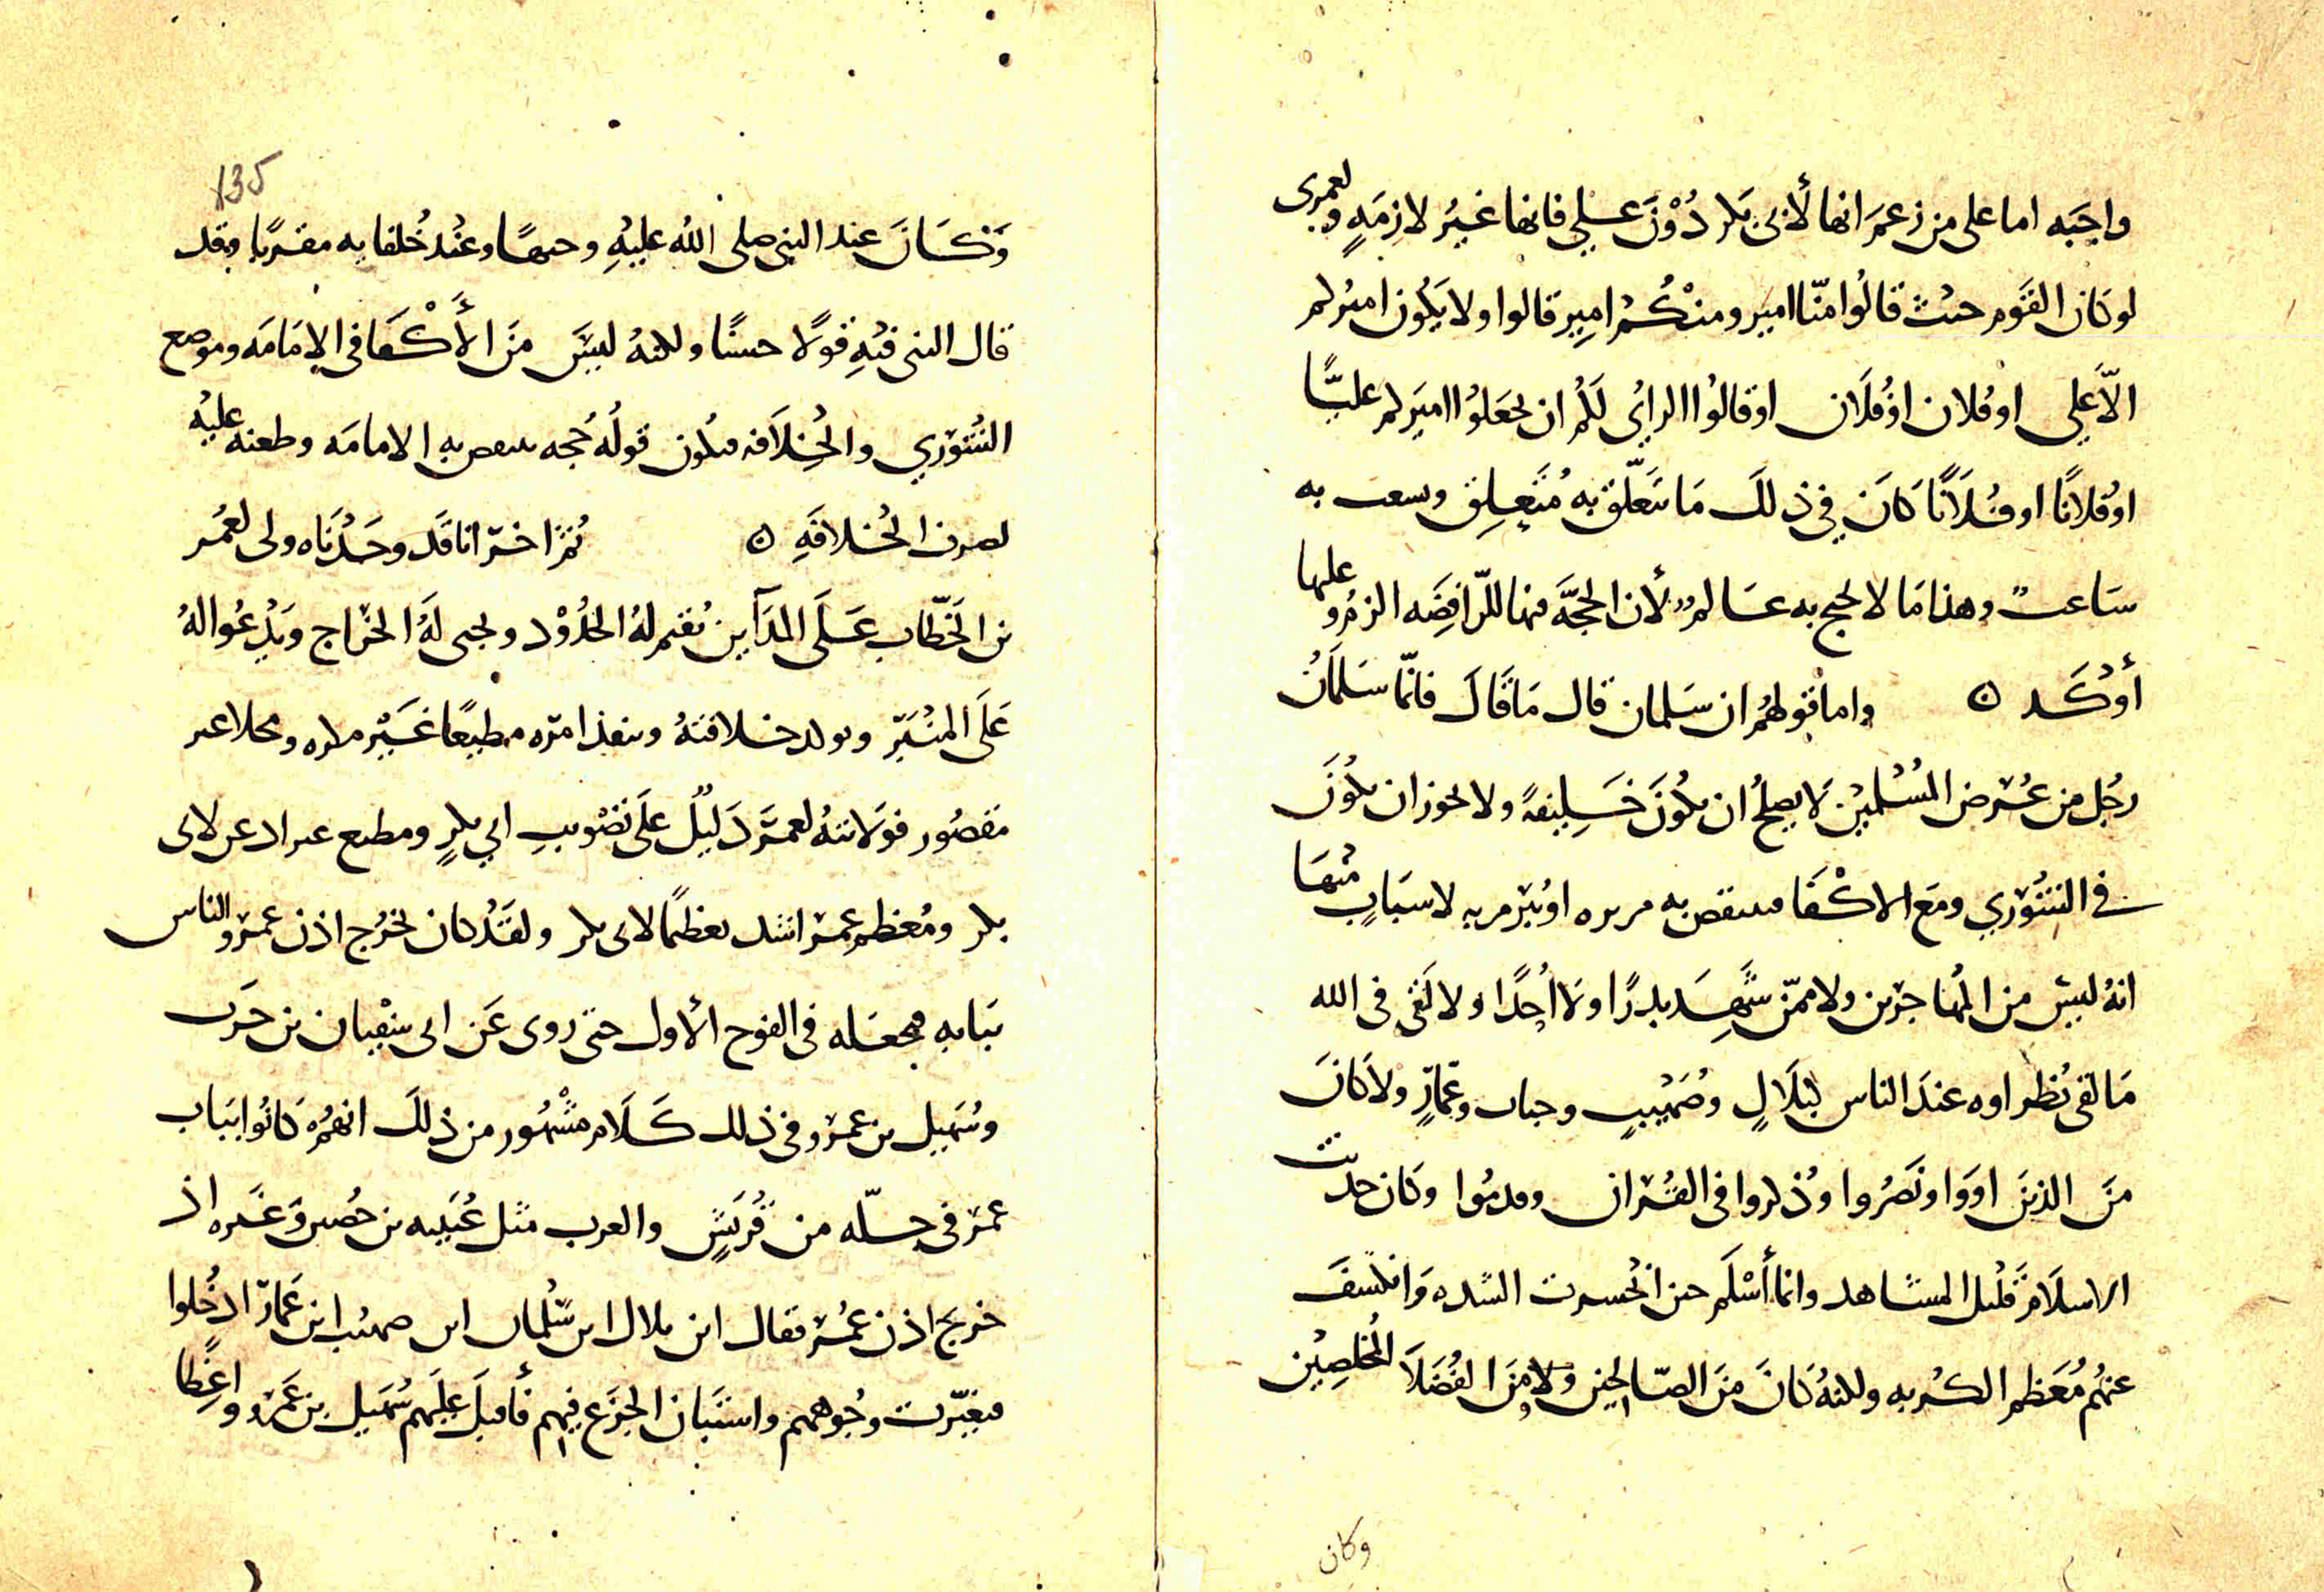 واجبه اما على من زعم انها لأبى بكر دُوْنَ عَلِي فانها غيرُ لازمَةٍ ولعمرى
لو كان القَوم حيْث قالُوا منّا امير ومنْكُمْ امِير قالوا ولا يكُون اميْركم
الاّ عَلِي او فُلان اوْ فُلَان او قالوُا الرايُ لكُم ان تجعَلوُا اميَركم عليًّا
اوْ فُلانًا او فُلَانًا كَانَ في ذلكَ مَا يتَعَلّق به مُتَعِلِق وسعت به
سَاعت وهذا مَا لا يحتج به عَالم لأن الحجَّة فيها للرّافِضَه الزم وعليها
أوْكَد ٥ واما قولهُم ان سَلمان قال مَا قَالَ فانّما سَلمَانُ
رجُل من عُرْض المُسْلميْن لا يصلحُ ان يكُوْنَ خَلِيفةً ولا يجوز ان يكُوْنَ
في الشُوْرَي ومَع الاكْفَا فينتقص به مريره اوْ يبْرم به لاسبَابٍ منْهَا
انهُ ليسَ من المُهاجرْين ولا ممّن شَهِدَ بدرًا ولا اُحُدًا ولا لقَى فى الله
مَا لقى نُظراوه عندَ الناس كبلَالٍ وصُهَيْبٍ وخباب وعمّارٍ ولا كانَ
منَ الذينَ اووَا ونَصَرُوا وُذكروا فى القُرْان وقدمُوا وكَان حديث
الاسلَام قَليْل المشَاهد وانما أسْلَم حين انْحسرت الشده وَانكسَفَ
عنهُم مُعَظم الكُربه ولكنهُ كانَ منَ الصّالحيْن ولا منَ الفُضَلَا المُخلصِيْن
وكان
135
وَكَانَ عند النبى صلى اللهُ عليْهِ وجيهًا وعنْد خُلفايه مقرّبًا وقد
قال النبى فيْهِ قوْلًا حسنًا ولكنهُ ليسَ منَ الأَكْفَا فى الامَامَه وموضع
الشُوْرَي والخِلَافه فيكُون قولُه حُجه ينتقص به الامامَه وطعنه عليْه
لصرف الخلافَهِ ٥ ثُمّ اخرّ انا قَد وجَدْنَاه ولى لعُمَر
بن الخَطّاب عَلَى المدَآين يُقيم لهُ الحُدُوْد ويجبى لَهُ الخرَاج ويَدْعُوا لهُ
عَلَى المنْبَر ويوكد خلافتهُ وينفذ امرَه مطيْعًا غَيْر مكره ومخلا غير
مَقصُور فوَلايتهُ لعمَر دَليْلُ علَى تصْويبِ ابي بكرٍ ومطيع عمر ادعن لابى
بكر ومُعَظم عمرَ اشد تعظيْمًا لابى بكر ولقَدْ كان يخرُج اذن عمرَ والناس
ببَابه فيجعَله فى الفوج الأول حتى روى عَن ابى سفْيان بن حَرب
وسُهَيل بن عمرو فى ذلك كَلَام مشْهُور من ذلكَ انهُم كانُوا ببَاب
عمرَ فى جلّه من قُريَشٍ والعرب مثل عُيَينه بن حُصن وَغَيره اذ
خرَجَ اذن عُمَر فقال اين بلال اين سَلْمان اين صهيْب اين عَمّار ادخُلوا
فتغيّرت وجُوههم واستَبان الجزَع فيهم فأقبلَ عليَهم سُهَيل بن عَمْرو واغطا